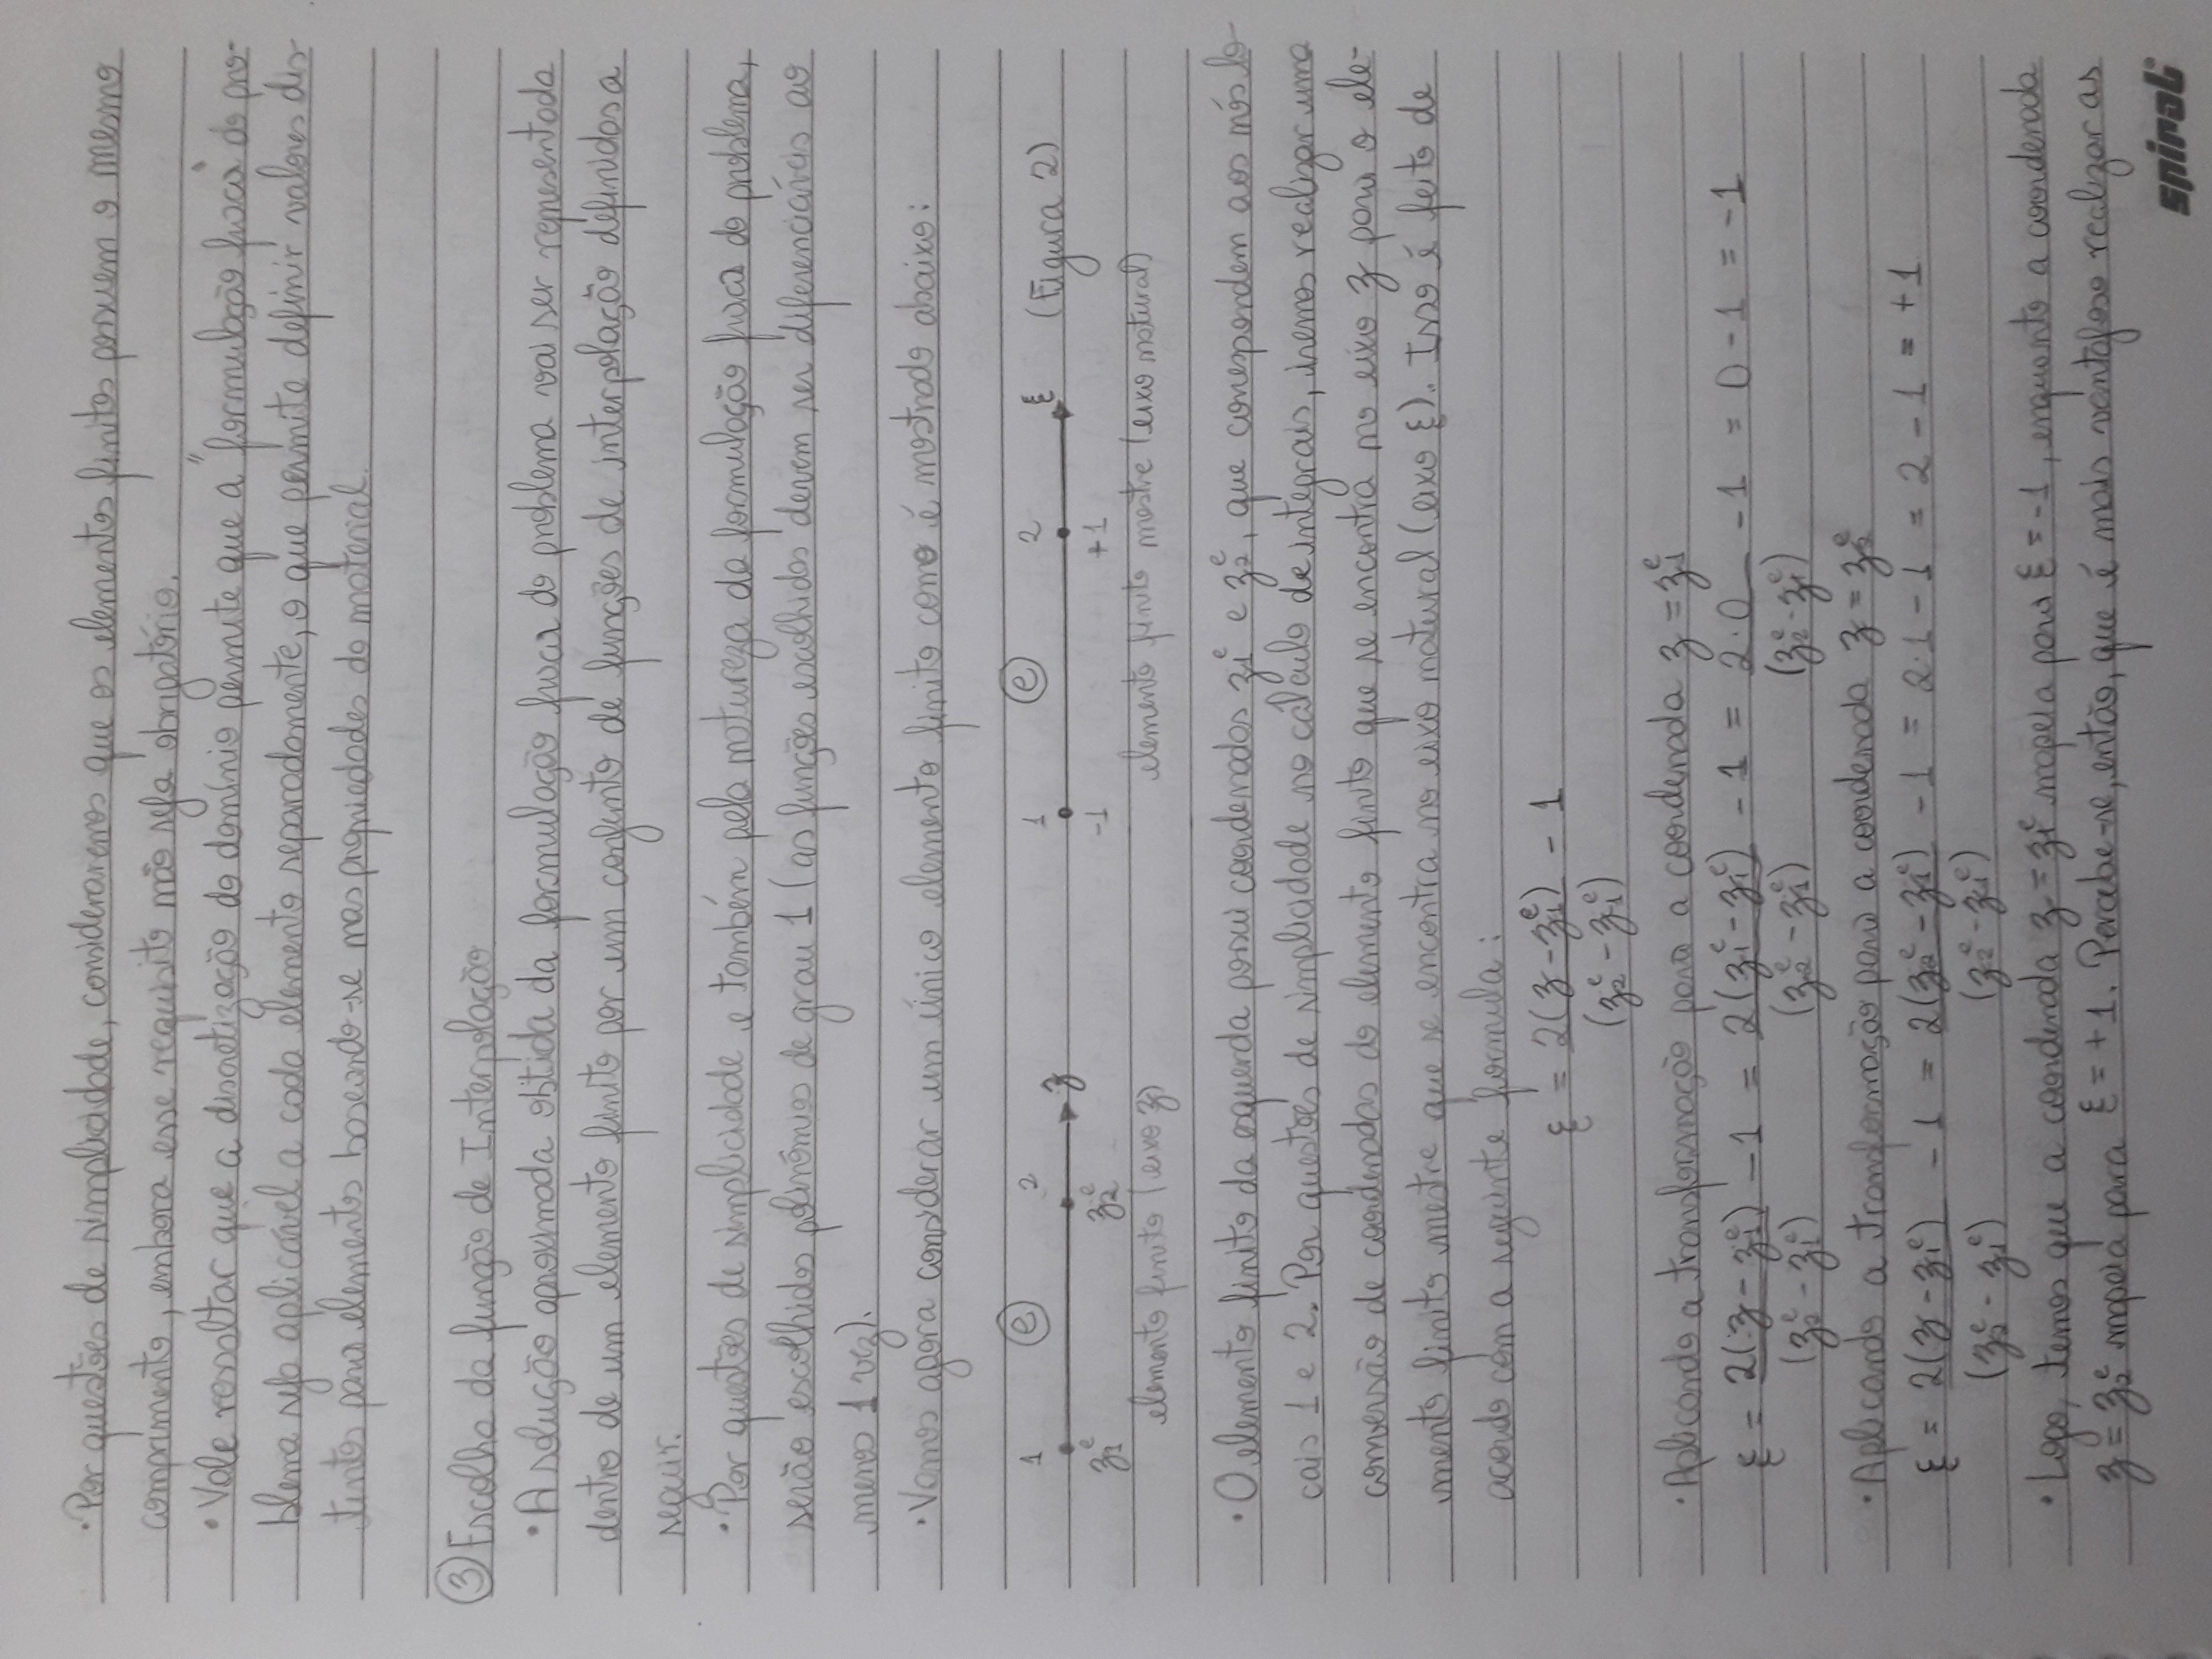 • Por questões de simplicidade, consideraremos que os elementos finitos possuem o mesmo
comprimento, embora esse requisito não seja obrigatório.
• Vale ressaltar que a discretização do domínio permite que a "formulação fraca" do pro-
blema seja aplicável a cada elemento separadamente, o que permite definir valores dis-
tintos para elementos baseando-se nas propriedades do material.
③ Escolha da função de Interpolação
• A solução aproximada obtida da formulação fraca do problema vai ser representada
dentro de um elemento finito por um conjunto de funções de interpolação definidas a
seguir.
• Por questões de simplicidade e também pela natureza da formulação fraca do problema,
serão escolhidos polinômios de grau 1 (as funções escolhidas devem ser diferenciáveis ao
menos 1 vez).
• Vamos agora considerar um único elemento finito como é mostrado abaixo:
1 ⓔ 2 1 ⓔ 2
z ξ (Figura 2)
z₁ᵉ z₂ᵉ -1 +1
elemento finito (eixo z) elemento finito mestre (eixo natural)
• O elemento finito da esquerda possui coordenadas z₁ᵉ e z₂ᵉ, que correspondem aos nós lo-
cais 1 e 2. Por questões de simplicidade no cálculo de integrais, iremos realizar uma
conversão de coordenadas do elemento finito que se encontra no eixo z para o ele-
mento finito mestre que se encontra no eixo natural (eixo ξ). Isso é feito de
acordo com a seguinte formula:
ξ = 2(z - z₁ᵉ) - 1
(z₂ᵉ - z₁ᵉ)
• Aplicando a transformação para a coordenada z = z₁ᵉ
ξ = 2(z - z₁ᵉ) - 1 = 2(z₁ᵉ - z₁ᵉ) - 1 = 2·0 - 1 = 0 - 1 = -1
(z₂ᵉ - z₁ᵉ) (z₂ᵉ - z₁ᵉ) (z₂ᵉ - z₁ᵉ)
• Aplicando a transformação para a coordenada z = z₂ᵉ
ξ = 2(z - z₁ᵉ) - 1 = 2(z₂ᵉ - z₁ᵉ) - 1 = 2·1 - 1 = 2 - 1 = +1
(z₂ᵉ - z₁ᵉ) (z₂ᵉ - z₁ᵉ)
• Logo, temos que a coordenada z = z₁ᵉ mapeia para ξ = -1, enquanto a coordenada
z = z₂ᵉ mapeia para ξ = +1. Percebe-se, então, que é mais vantajoso realizar as
spiral®